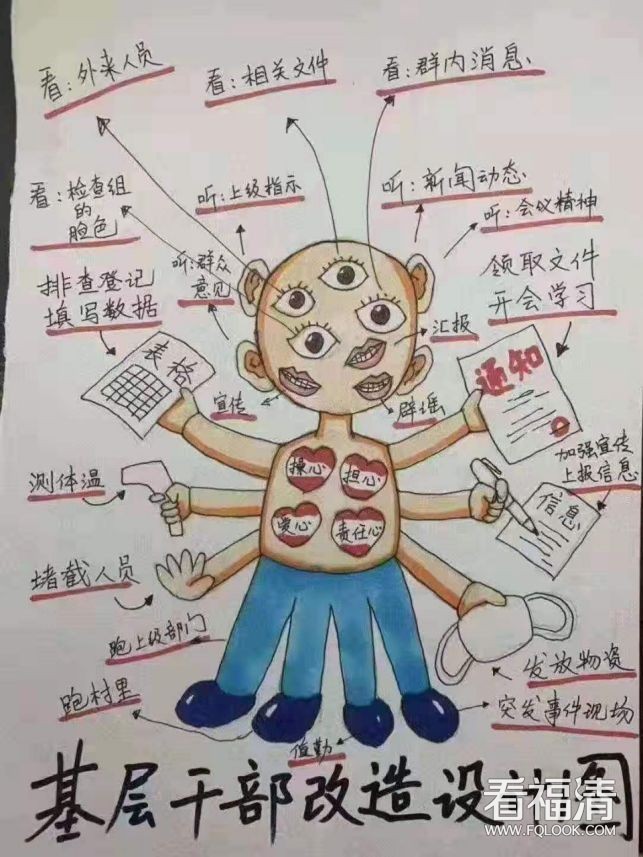 看：外来人员
看：相关文件
看：群内消息、
看：检查组
的
脸色
听：上级指示
听：新闻动态、
听：会议精神
听：群众
意见
排查登记
填写数据
领取文件
开会学习
表格
汇报
通知
宣传
辟谣
加强宣传
上报信息
操心
担心
测体温
信息
爱心
责任心
堵截人员
跑上级部门
发放物资
跑村里
突发事件现场
值勤
基层干部改造设计图
看福清
WWW.FQLOOK.COM